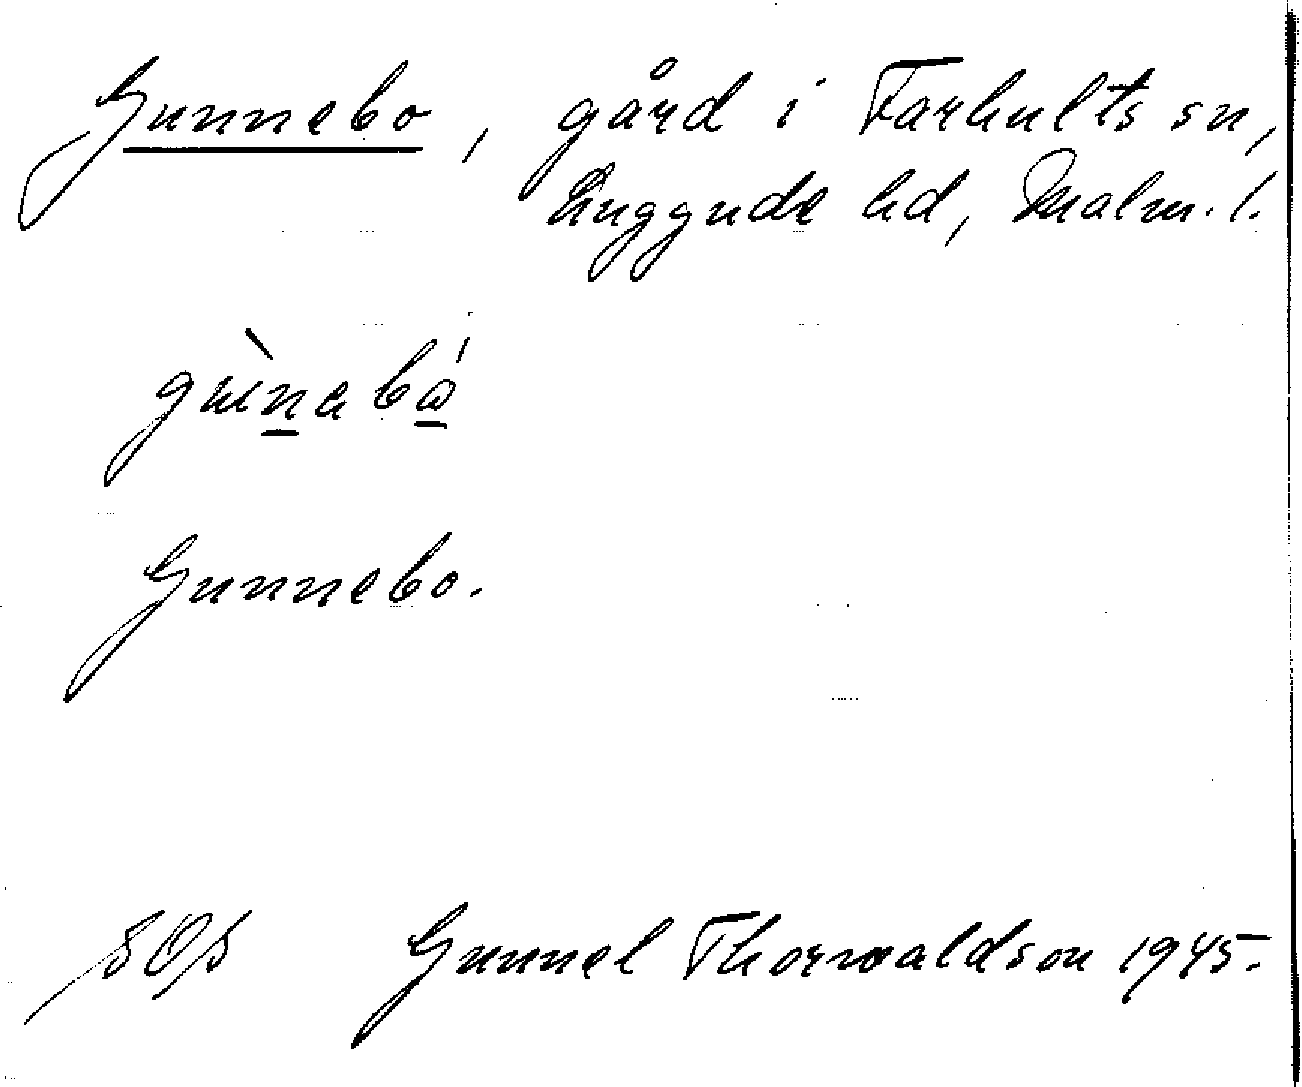 Gunnebo, gård i Farhults sn,
Luggude hd, Malm. l.
Gunnebo.
Gunnel Thorwaldson 1945.